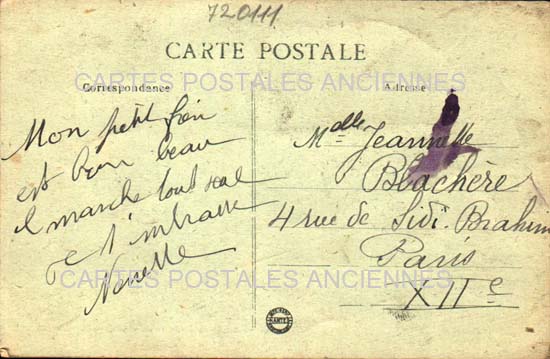 720111
CARTE POSTALE
CARTES POSTALES ANCIENNES
Correspondance
Adresse
Mon petit
est bien beau
il marche tout seul
Je t'embrasse
Nenette
Melle Jeannette
Blachère
4 rue de Sidi-Brahim
Paris
XIIe
CARTES POSTALES ANCIENNES